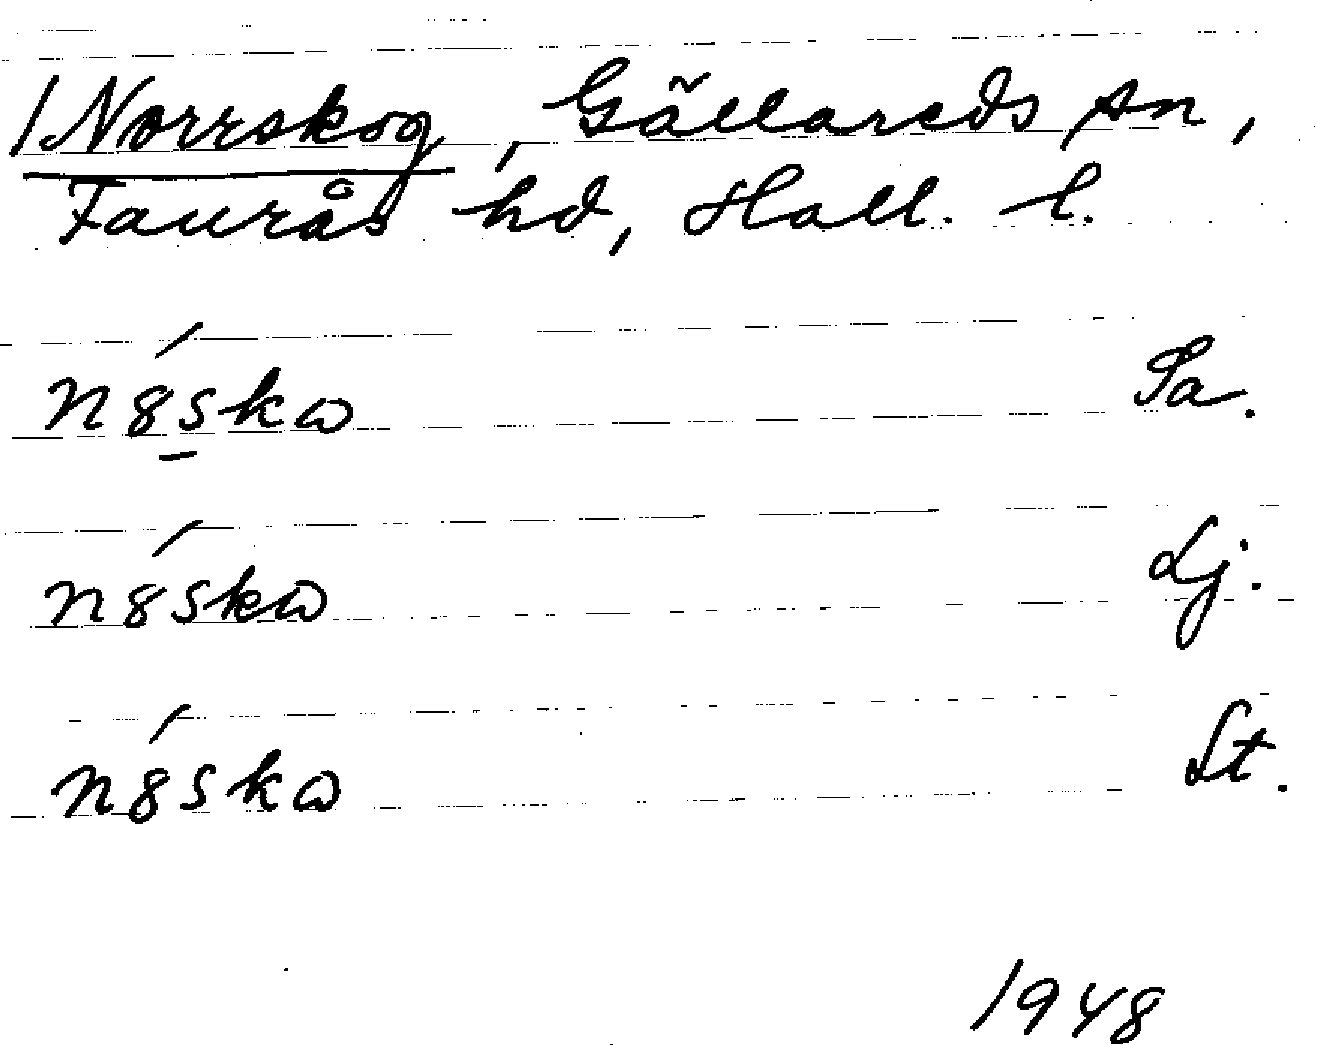 /Norrskog, Gällareds sn,
Faurås hd, Hall. l.
n8́skω Sa.
n8́skω Lj.
n8́skω St.
1948